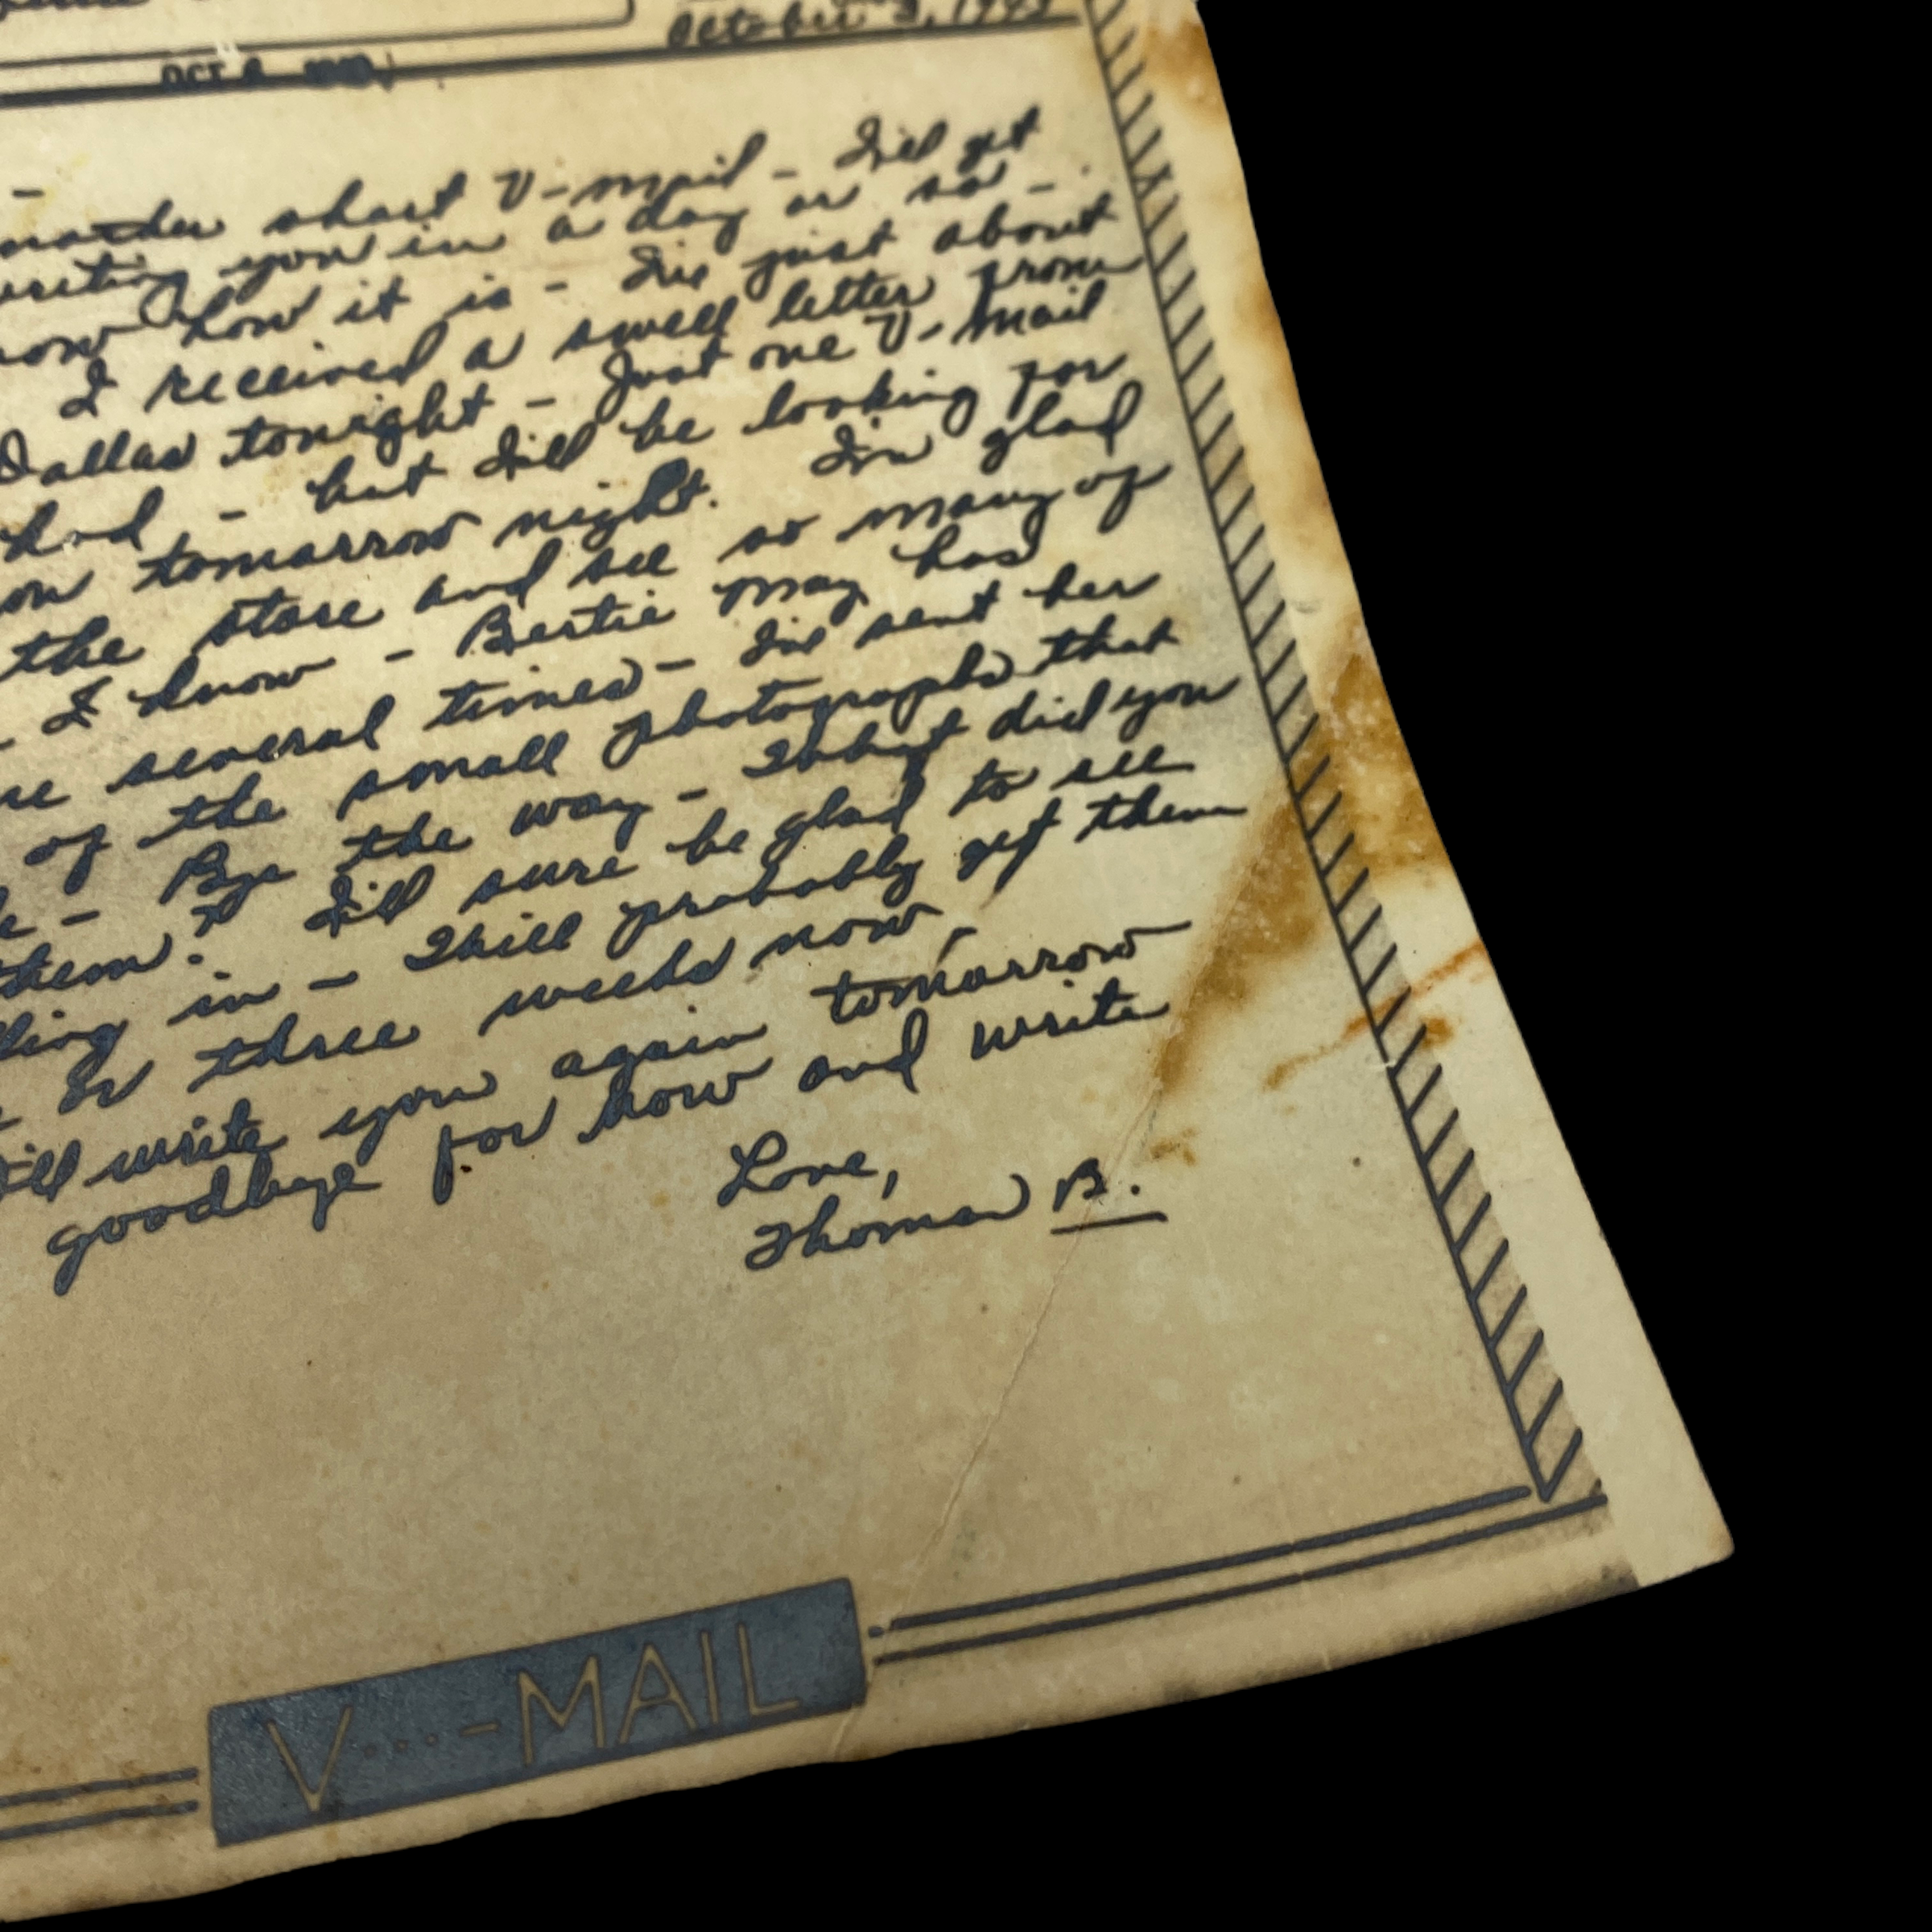 October 3, 1943
OCT
short V-mail - I'll get
you in a day or so -
how it is - I've just about
I received a swell letter from
Dallas tonight - Just one V-Mail
had - but I'll be looking for
tomorrow night. I'm glad
the store and see so many of
I know - Bertie May has
several times - I've sent her
of the small photographs that
- Bye the way - What did you
them? I'll sure be glad to see
in - Will probably get them
or three weeks now,
write you again tomorrow
goodbye for now and write
Love,
Thomas B.
V...-MAIL